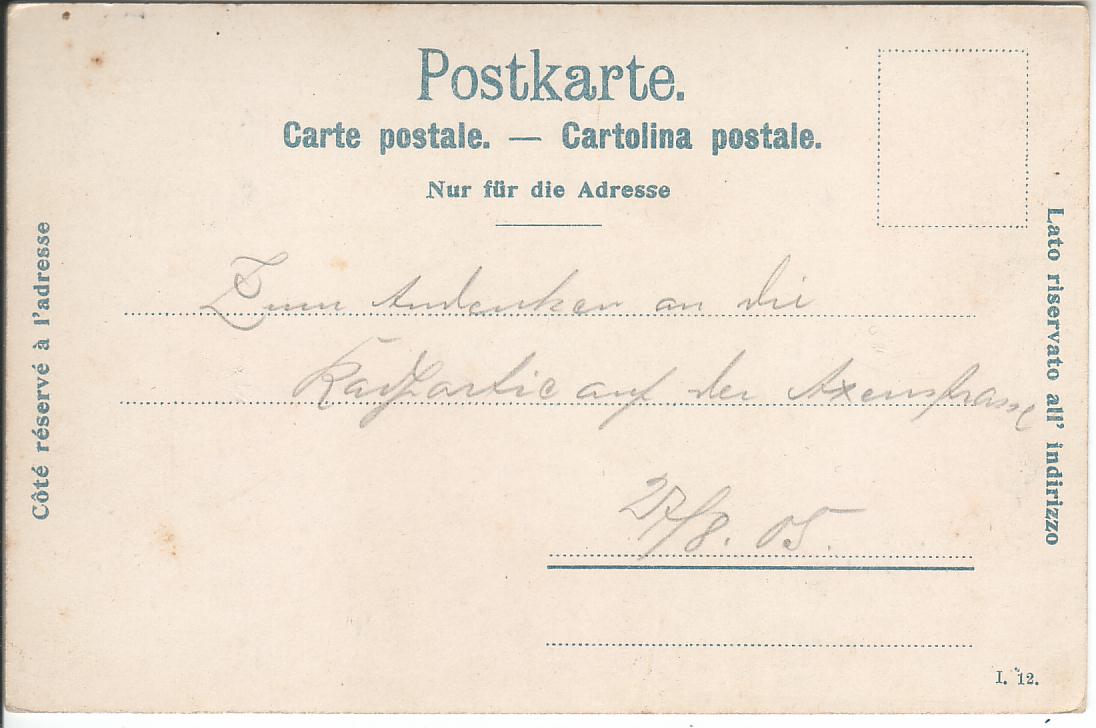 Postkarte.
Carte postale. — Cartolina postale.
Nur für die Adresse
Côté réservé à l'adresse
Lato riservato all' indirizzo
Zum Andenken an die
Radpartie auf der Axenstrasse
27/8. 05.
I. 12.